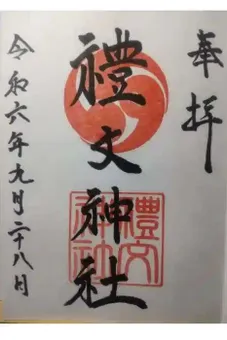 奉拝
禮文神社
禮文神社
令和六年九月二十八日